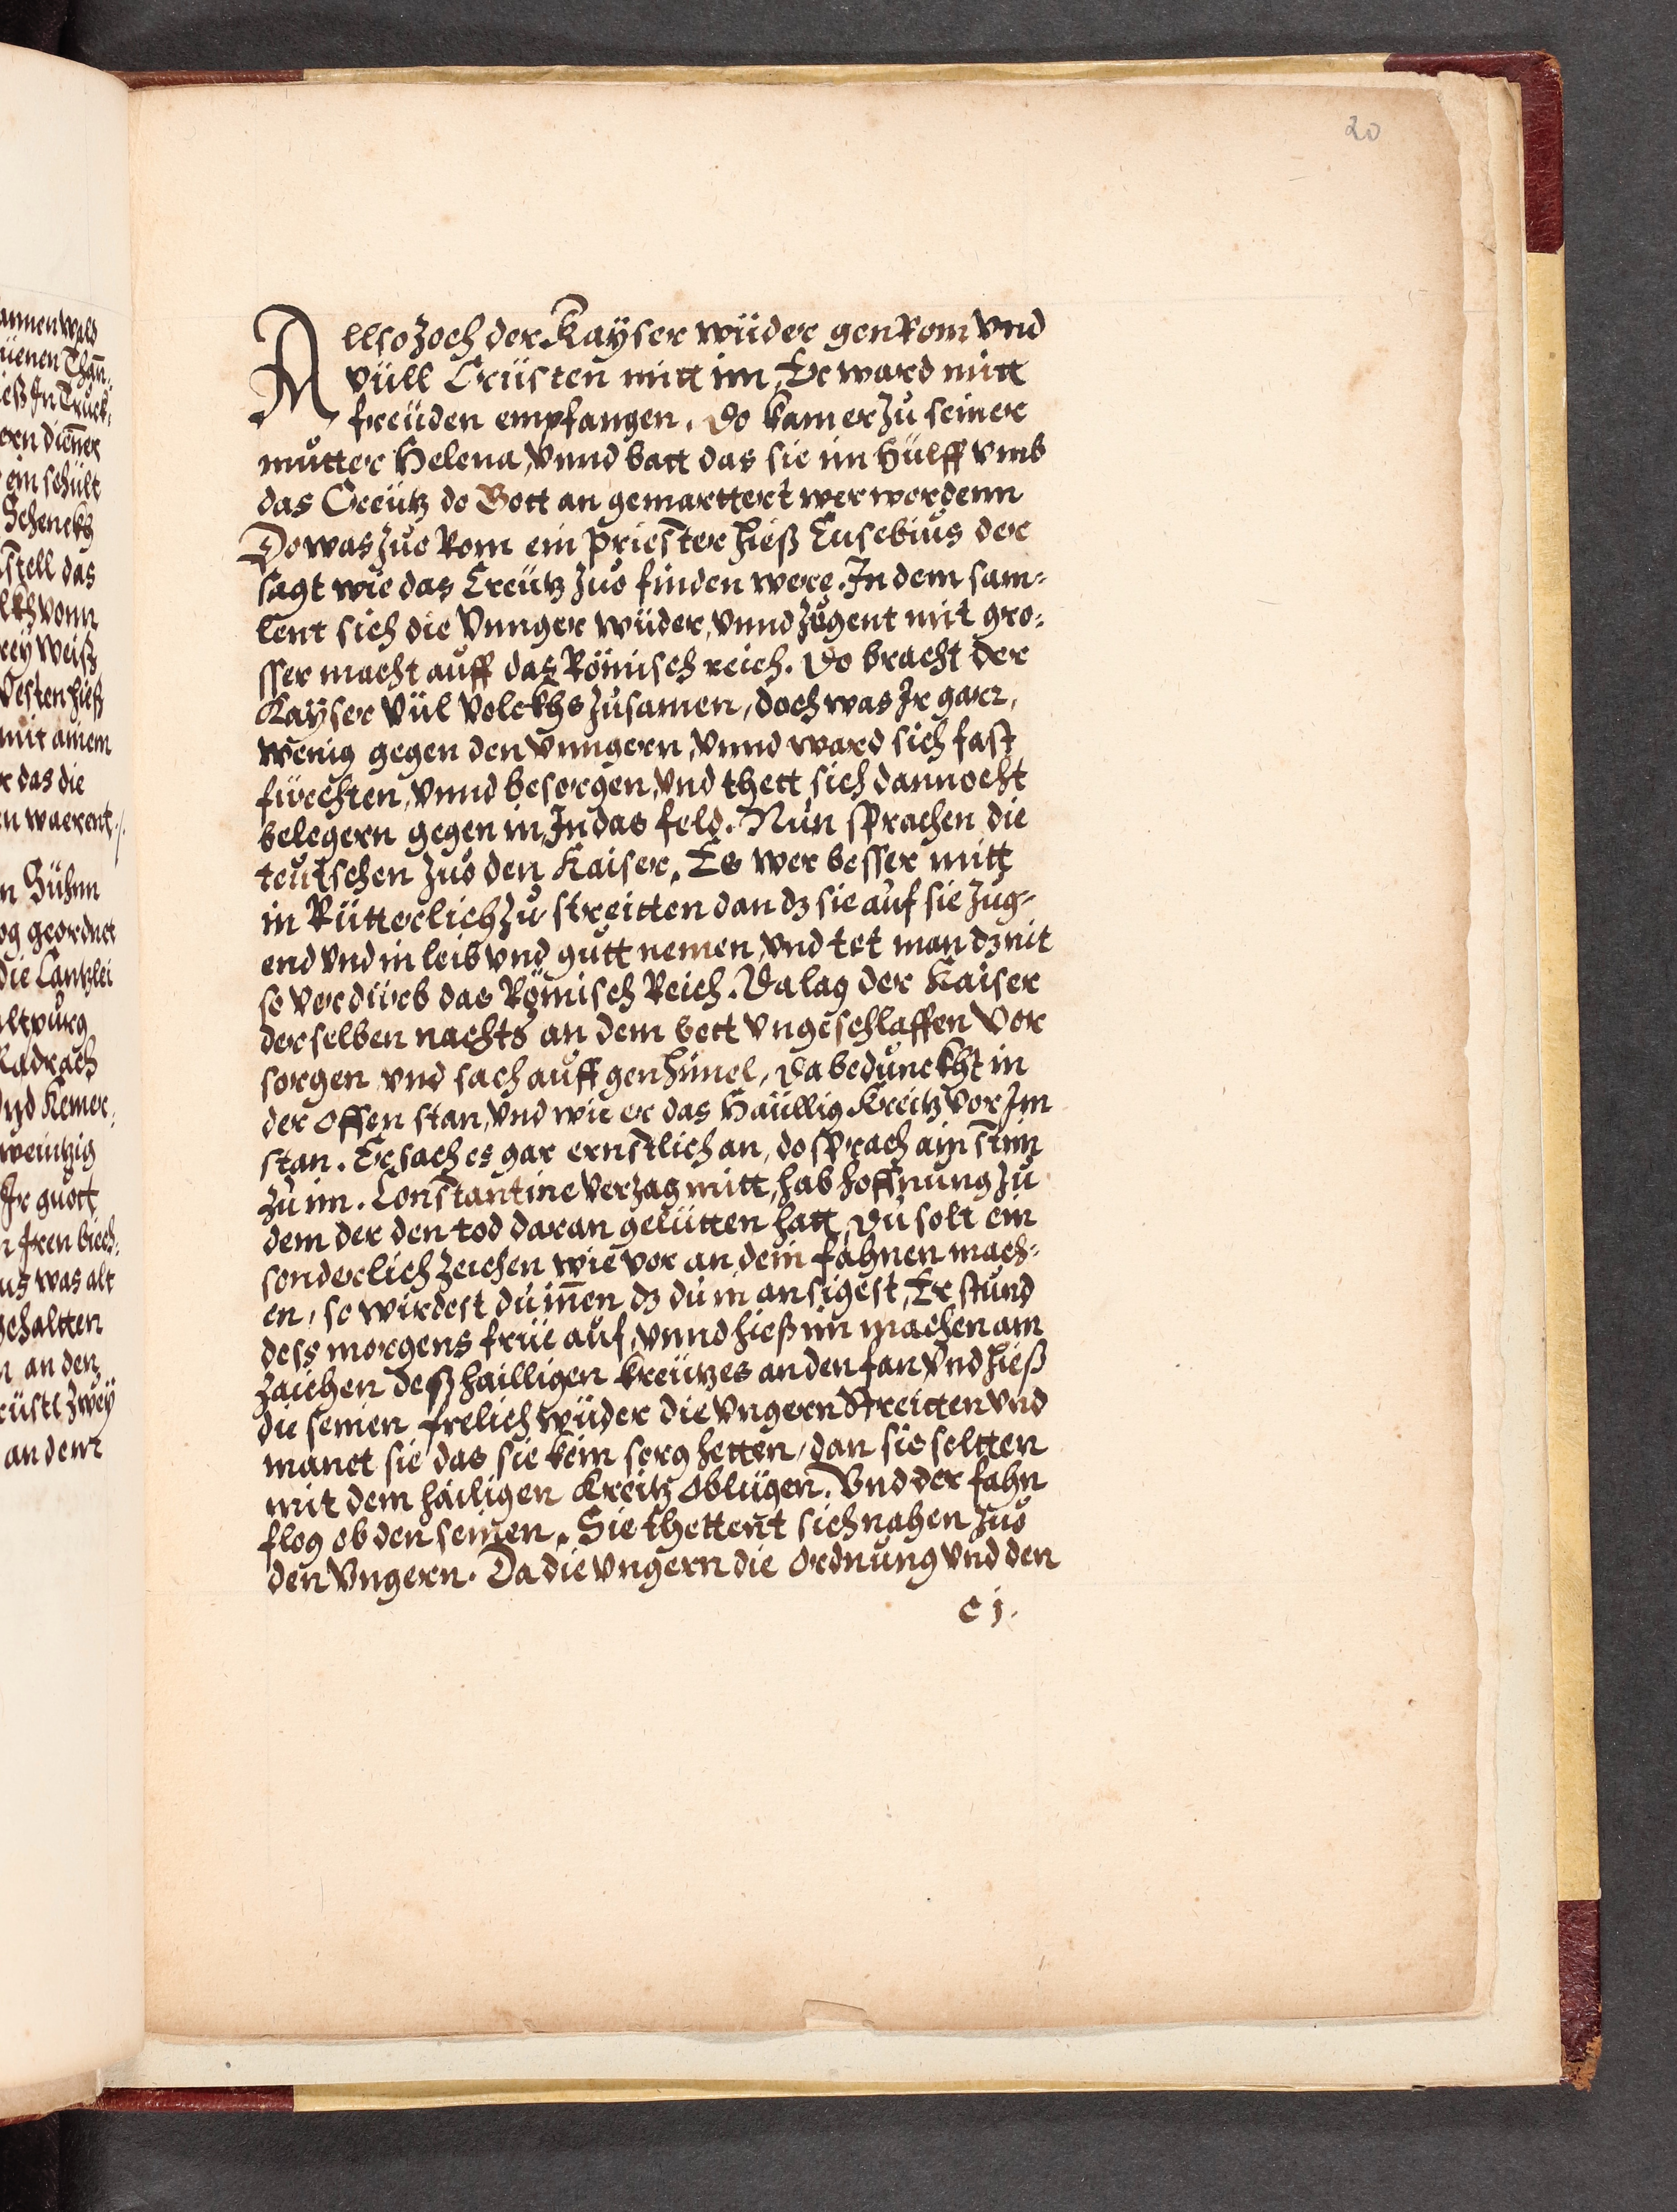 20
Allso zoch der Kaÿser wüder gen Rom vnd
vüll Crüsten mitt im, Er ward mitt
freüden empfangen. Do kam er zu seiner
mutter Helena, vnnd batt das sie im hülff vmb
das Creütz do Gott an gemarttert wer wordenn
Do was zuo Rom ein priester hieß Eusebius der
sagt wie das Creütz zuo finden were. In dem sam-
lent sich die Vnnger wüder, vnnd zugent mit gro-
sser macht auff das Römisch reich. Do bracht der
Kaÿser vül volckhs zusamen, doch was Ir garr,
wenig gegen den Vnngern, vnnd ward sich fast
fürchten, vnnd besorgen, vnd thett sich dannocht
belegern gegen in, In das feld. Nun sprachen die
teutschen zuo den Kaiser, Es wer besser mitt
in Rütterlich zu streitten dan dz sie auf sie zug-
end vnd in leib vnd gutt nemen, vnd tet man dz nit
so verdürb das Römisch Reich. Da lag der Kaiser
derselben nachts an dem bett vngeschlaffen vor
sorgen vnd sach auff gen himel, Da bedunckht in
der offen stan, vnd wie er das Haüllig Kreitz vor Im
stan. Er sach es gar ernstlich an, do sprach ain stim
zu im. Constantine verzag nitt, hab hoffnung zu
dem der den tod daran gelütten hatt, Du solt ein
sonderlich zeichen wie vor an dein fahnen mach-
en, so wirdest du innen dz du in ansigest, Er stund
dess morgens früe auf, vnnd hieß im machen am
zaichen deß hailligen kreützes an den fan vnd hieß
die seinen frelich wüder die Vngern streitten vnd
manet sie das sie kein sorg hetten, dan sie soltten
mit dem hailigen Kreitz oblügen. Vnd der fahn
flog ob den seinen. Sie thettent sich nahen zuo
den Vngern. Da die Vngern die Ordnung vnd den
e j.